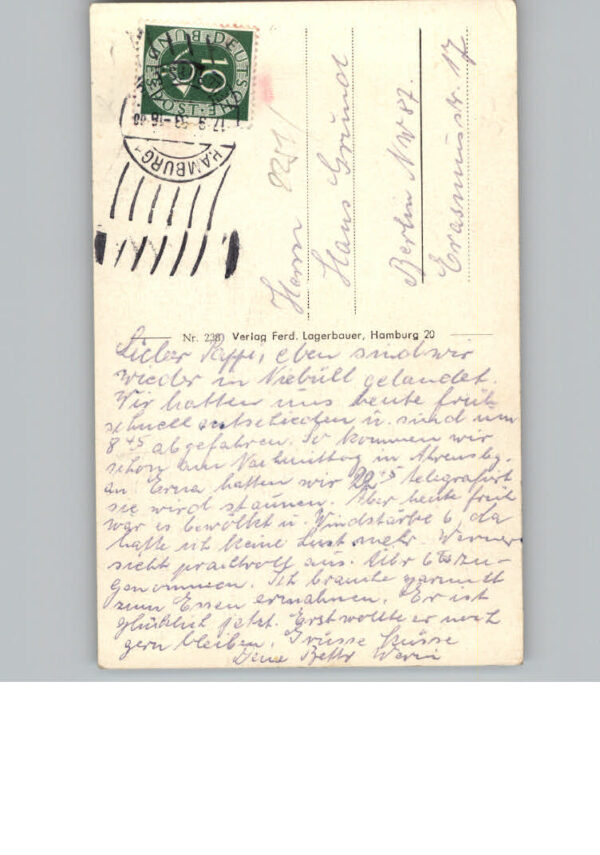 DEUTSCHE BUNDESPOST
10
17.9.53-16
HAMBURG
Herrn
Hans Grundt
Berlin NW 87.
Erasmusstr. 17
Nr. 2280 Verlag Ferd. Lagerbauer, Hamburg 20
Lieber Pappi, eben sind wir
wieder in Niebüll gelandet.
Wir hatten uns heute früh
schnell entschieden u. sind um
8 45 abgefahren. So kommen wir
schon am Nachmittag in Ahrensbg.
an Erna hatten wir telegrafirt.
sie wird staunen. Aber heute früh
war es bewölkt u. Windstärke 6, da
hatte ich keine Lust mehr. Werner
sieht prachtvoll aus. zu-
genommen. Ich brauche garnicht
zum Essen ermahnen. Er ist
glücklich jetzt. Erst wollte er noch
gern bleiben. Grüsse Küsse
Deine